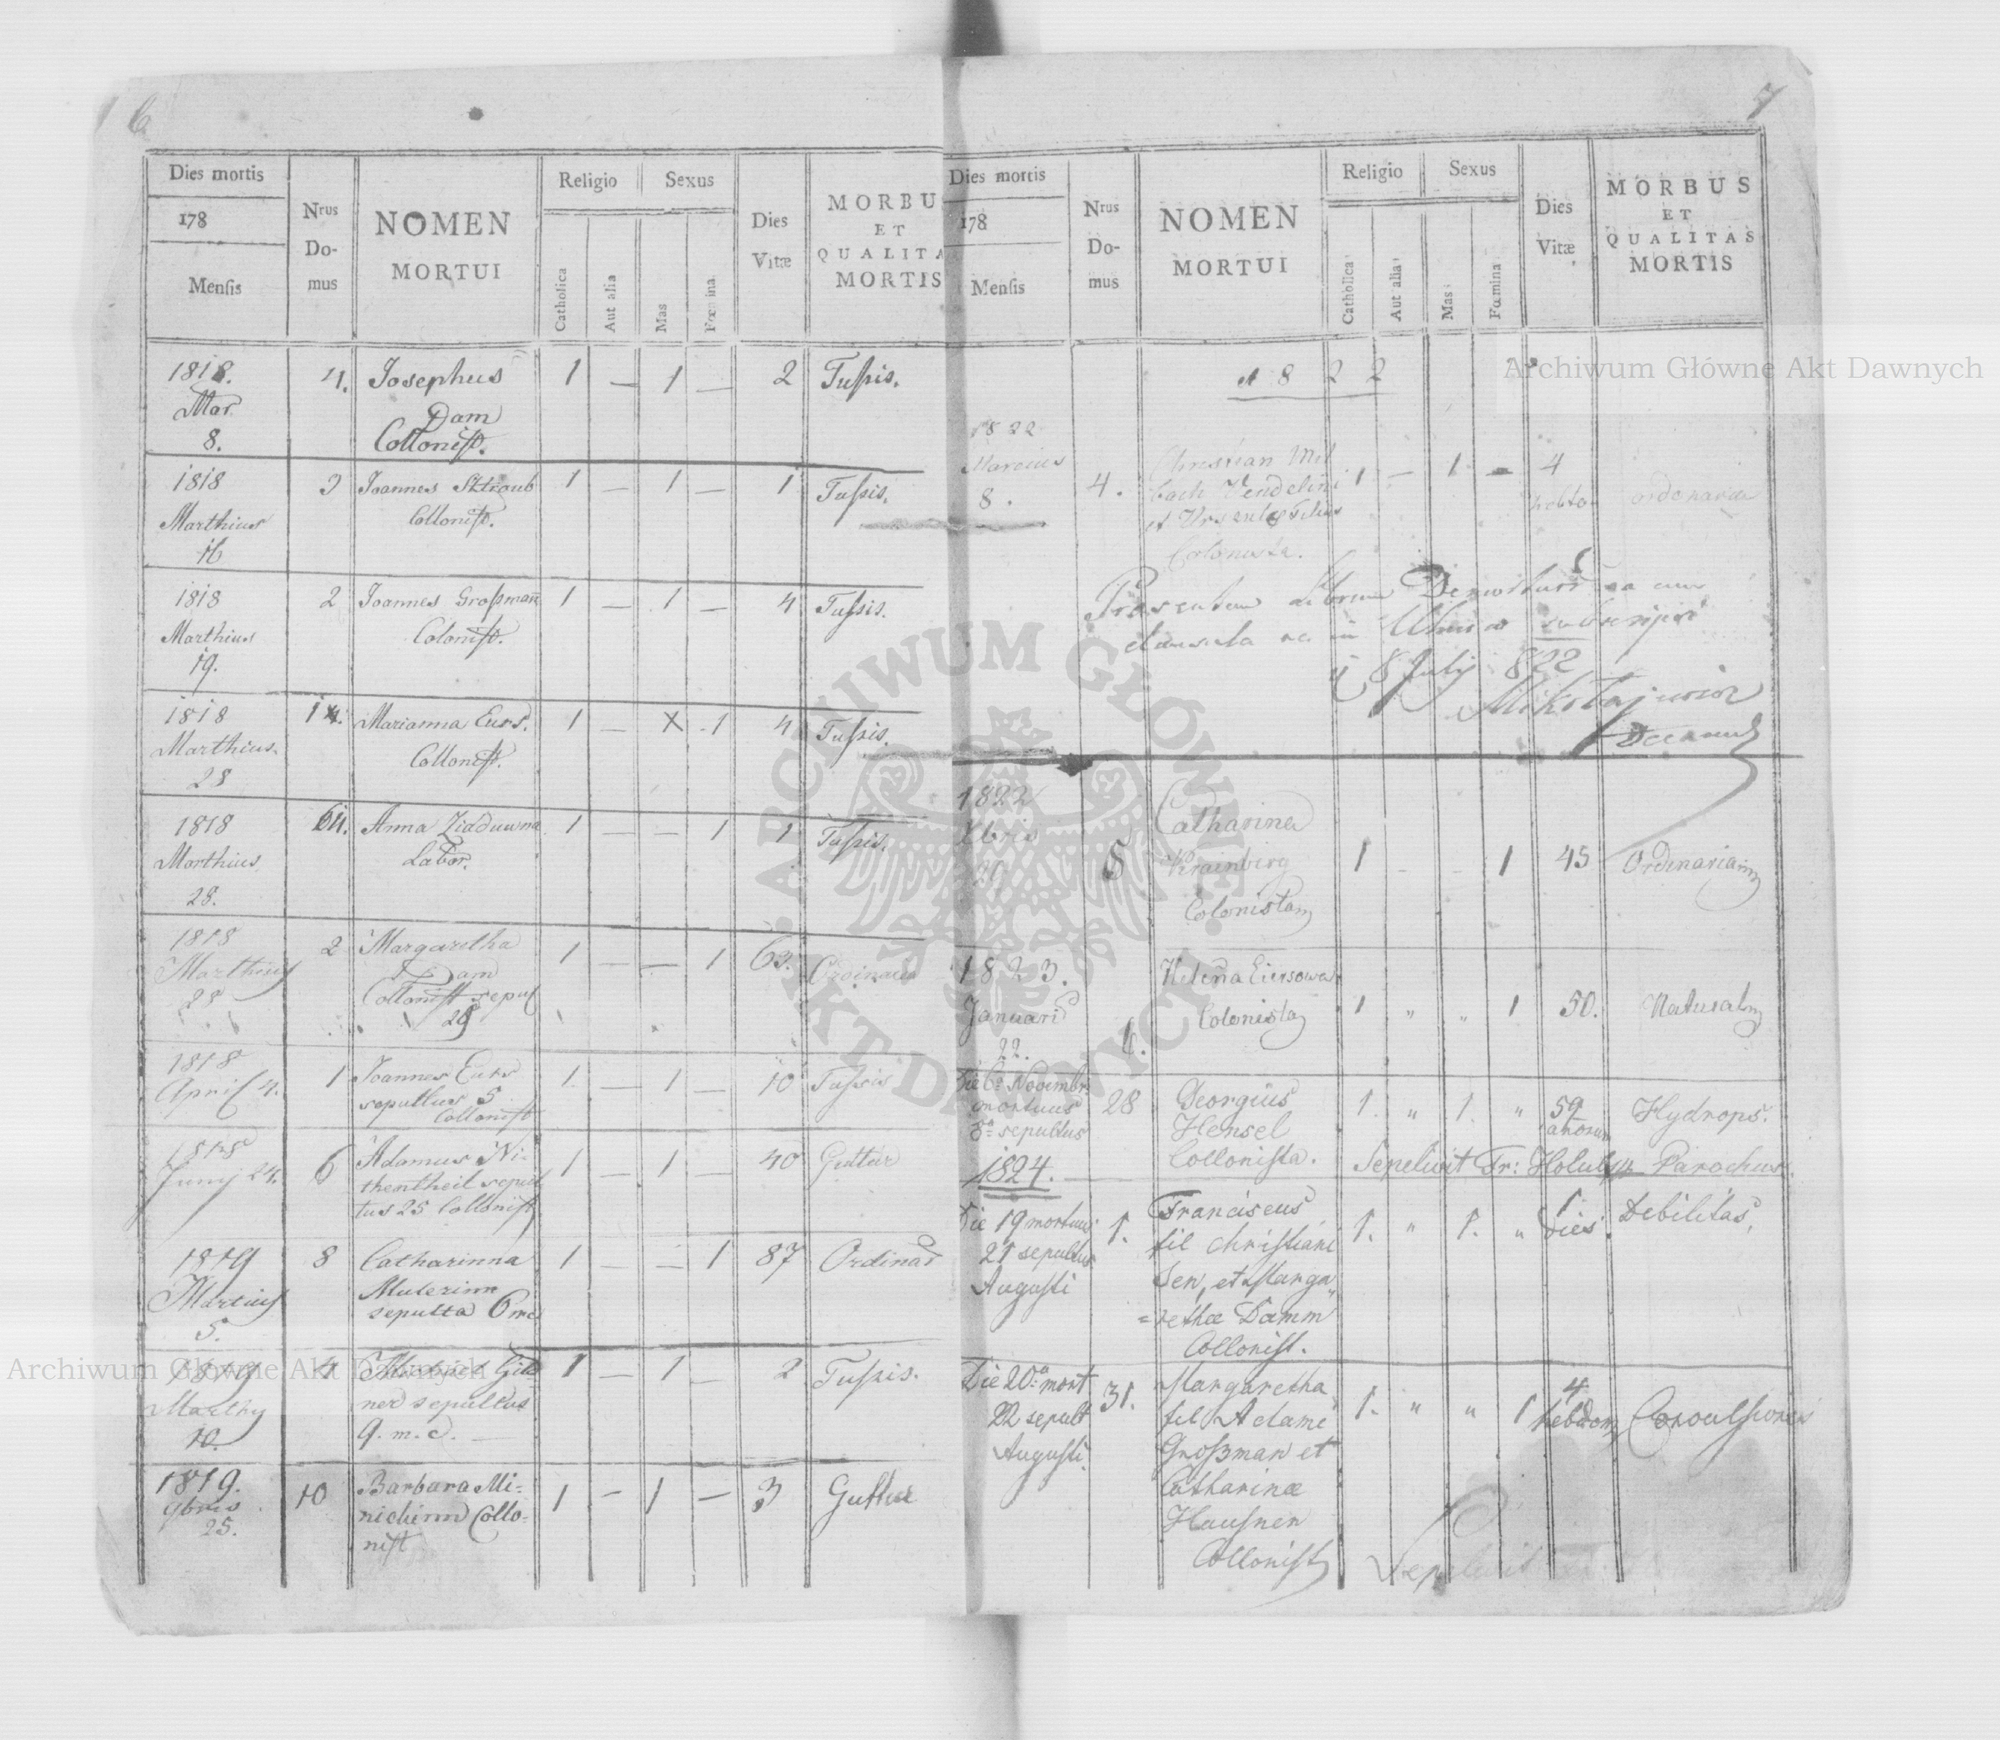 6
Dies mortis
178
Mensis
Nrus
Do-
mus
NOMEN
MORTUI
Religio
Catholica
Aut alia
Sexus
Mas
Fœmina
Dies
Vitæ
MORBU
ET
QUALITA
MORTIS
1818. 4. Josephus 1 — 1 — 2 Tussis.
Mar. Dam
8. Collonist.
1818 3 Joannes Sztroub 1 — 1 — 1 Tussis.
Marthius Collonist.
16
1818 2 Joannes Großman 1 — 1 — 4 Tussis.
Marthius Colonist.
19.
1818 Marianna Eurs. 1 — X 1 4 Tussis.
Marthius. Collonist.
28
1818 64. Anna 1 — — 1 1 Tussis.
Marthius Labor.
28.
1818 2 Margaretha 1 — — 1 63.
Marthius Dam
28 Collonist sepul
29
1818 1 Joannes Eurs 1. — 1 — 10 Tussis
April 4. sepultus 5
Collonist
1818 6 Adamus Ni- 1 — 1 — 40 Guttur
Juny 24. thentheil sepul
tus 25 Collonist
1819 8 Catharinna 1 — — 1 87 Ordinar
Martius Mulerinn
5. sepulta 6 me
1819 4 1 — 1 — 2 Tussis.
Marthy ner sepultus
10. 9. m. c.
1819. 10 Barbara Mi- 1 — 1 — 3
9bris nichinn Collo-
25. nist
7
Dies mortis
178
Mensis
Nrus
Do-
mus
NOMEN
MORTUI
Religio
Catholica
Aut alia
Sexus
Mas
Fœmina
Dies
Vitæ
MORBUS
ET
QUALITAS
MORTIS
1822
1822
Marcius 4. Christian Mil 1 — 1 — 4
8. bach Vendelini
et filius
Colonista.
Præsentem Librum
clausula ac in subscripsi
8 July 822
Mikołajewicz
Decanus
1822 Catharina
Xbris 5 Krainbirg 1 - - 1 45 Ordinaria
Colonista
1823. Helena Eiersowa
Januari Colonista 1 " " 1 50. Naturalis
22. 4.
Die 6a Novembr 28 Georgius 1. " 1. " 59 Hydrops.
mortuus Hensel annorum
8a sepultus Collonista. Sepelivit Fr: Parochus.
1824.
Die 19 mortuus 1. Franciscus 1. " 1. " 1 Debilitas,
21 sepultus fil Christiani dies.
Augusti Sen, et Marga„
=rethæ Damm
Collonist.
Die 20a mort 31. Margaretha 1. " " 1 4 Convulsiones
22 sepult fil Adami hebdom
Augusti. Großman et
Catharinæ
Hausner
Collonist
Sepelivit
Archiwum Główne Akt Dawnych
Archiwum Główne Akt Dawnych
ARCHIWUM GŁÓWNE AKT DAWNYCH